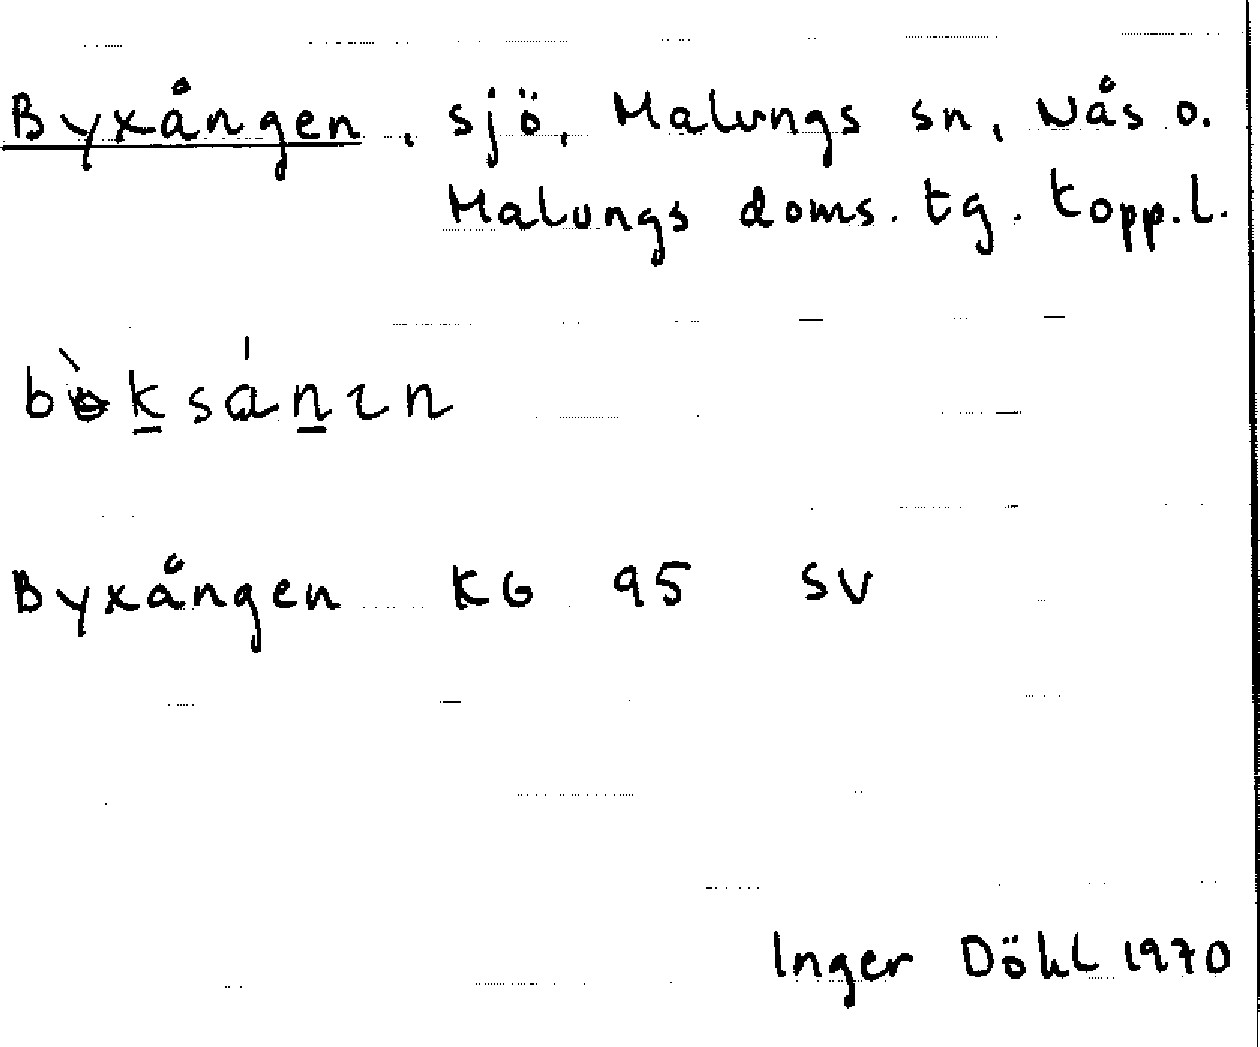 Byxången, sjö, Malungs sn, Nås o.
Malungs doms. tg. Kopp.l.
Byxången KG 95 SV
Inger Döhl 1970